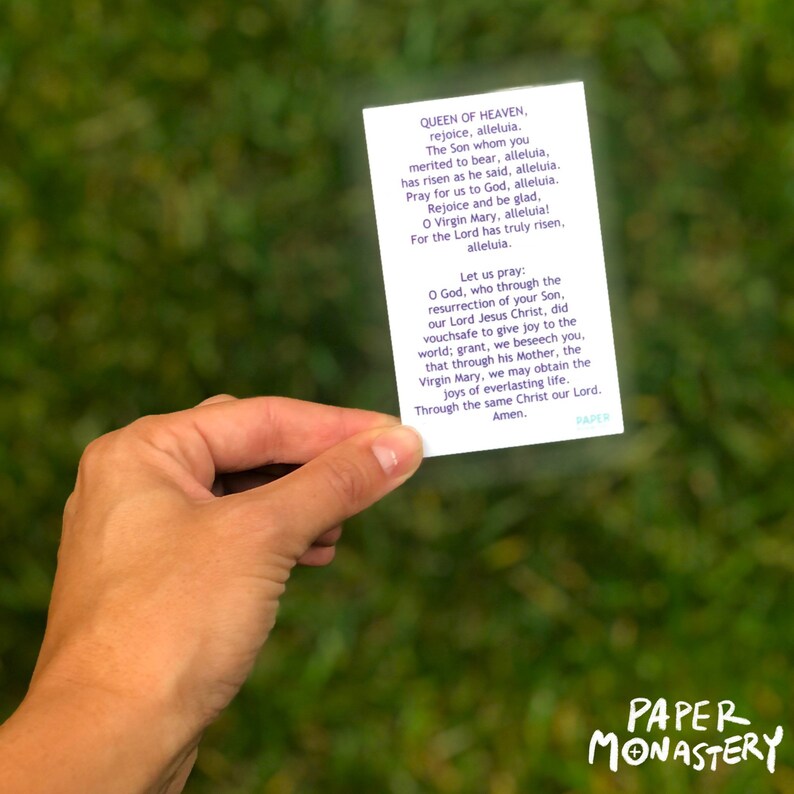 QUEEN OF HEAVEN,
rejoice, alleluia.
The Son whom you
merited to bear, alleluia,
has risen as he said, alleluia.
Pray for us to God, alleluia.
Rejoice and be glad,
O Virgin Mary, alleluia!
For the Lord has truly risen,
alleluia.
Let us pray:
O God, who through the
resurrection of your Son,
our Lord Jesus Christ, did
vouchsafe to give joy to the
world; grant, we beseech you,
that through his Mother, the
Virgin Mary, we may obtain the
joys of everlasting life.
Through the same Christ our Lord.
Amen.
PAPER
PAPER
MONASTERY